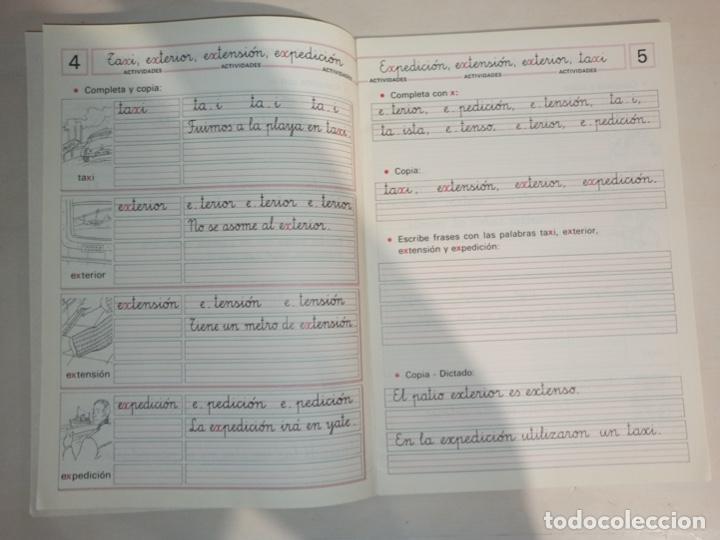 4
Taxi, exterior, extensión, expedición
ACTIVIDADES ACTIVIDADES ACTIVIDADES
• Completa y copia:
taxi ta.i ta.i ta.i
Fuimos a la playa en taxi.
taxi
exterior e.terior e.terior e.terior
No se asome al exterior.
exterior
extensión e.tensión e.tensión
Tiene un metro de extensión.
extensión
expedición e.pedición e.pedición
La expedición irá en yate.
expedición
Expedición, extensión, exterior, taxi
5
ACTIVIDADES ACTIVIDADES ACTIVIDADES
• Completa con x:
e.terior, e.pedición, e.tensión, ta.i,
ta.ista, e.tenso. e.terior, e.pedición.
• Copia:
taxi, extensión, exterior, expedición.
• Escribe frases con las palabras taxi, exterior,
extensión y expedición:
• Copia - Dictado:
El patio exterior es extenso.
En la expedición utilizaron un taxi.
todocoleccion.net